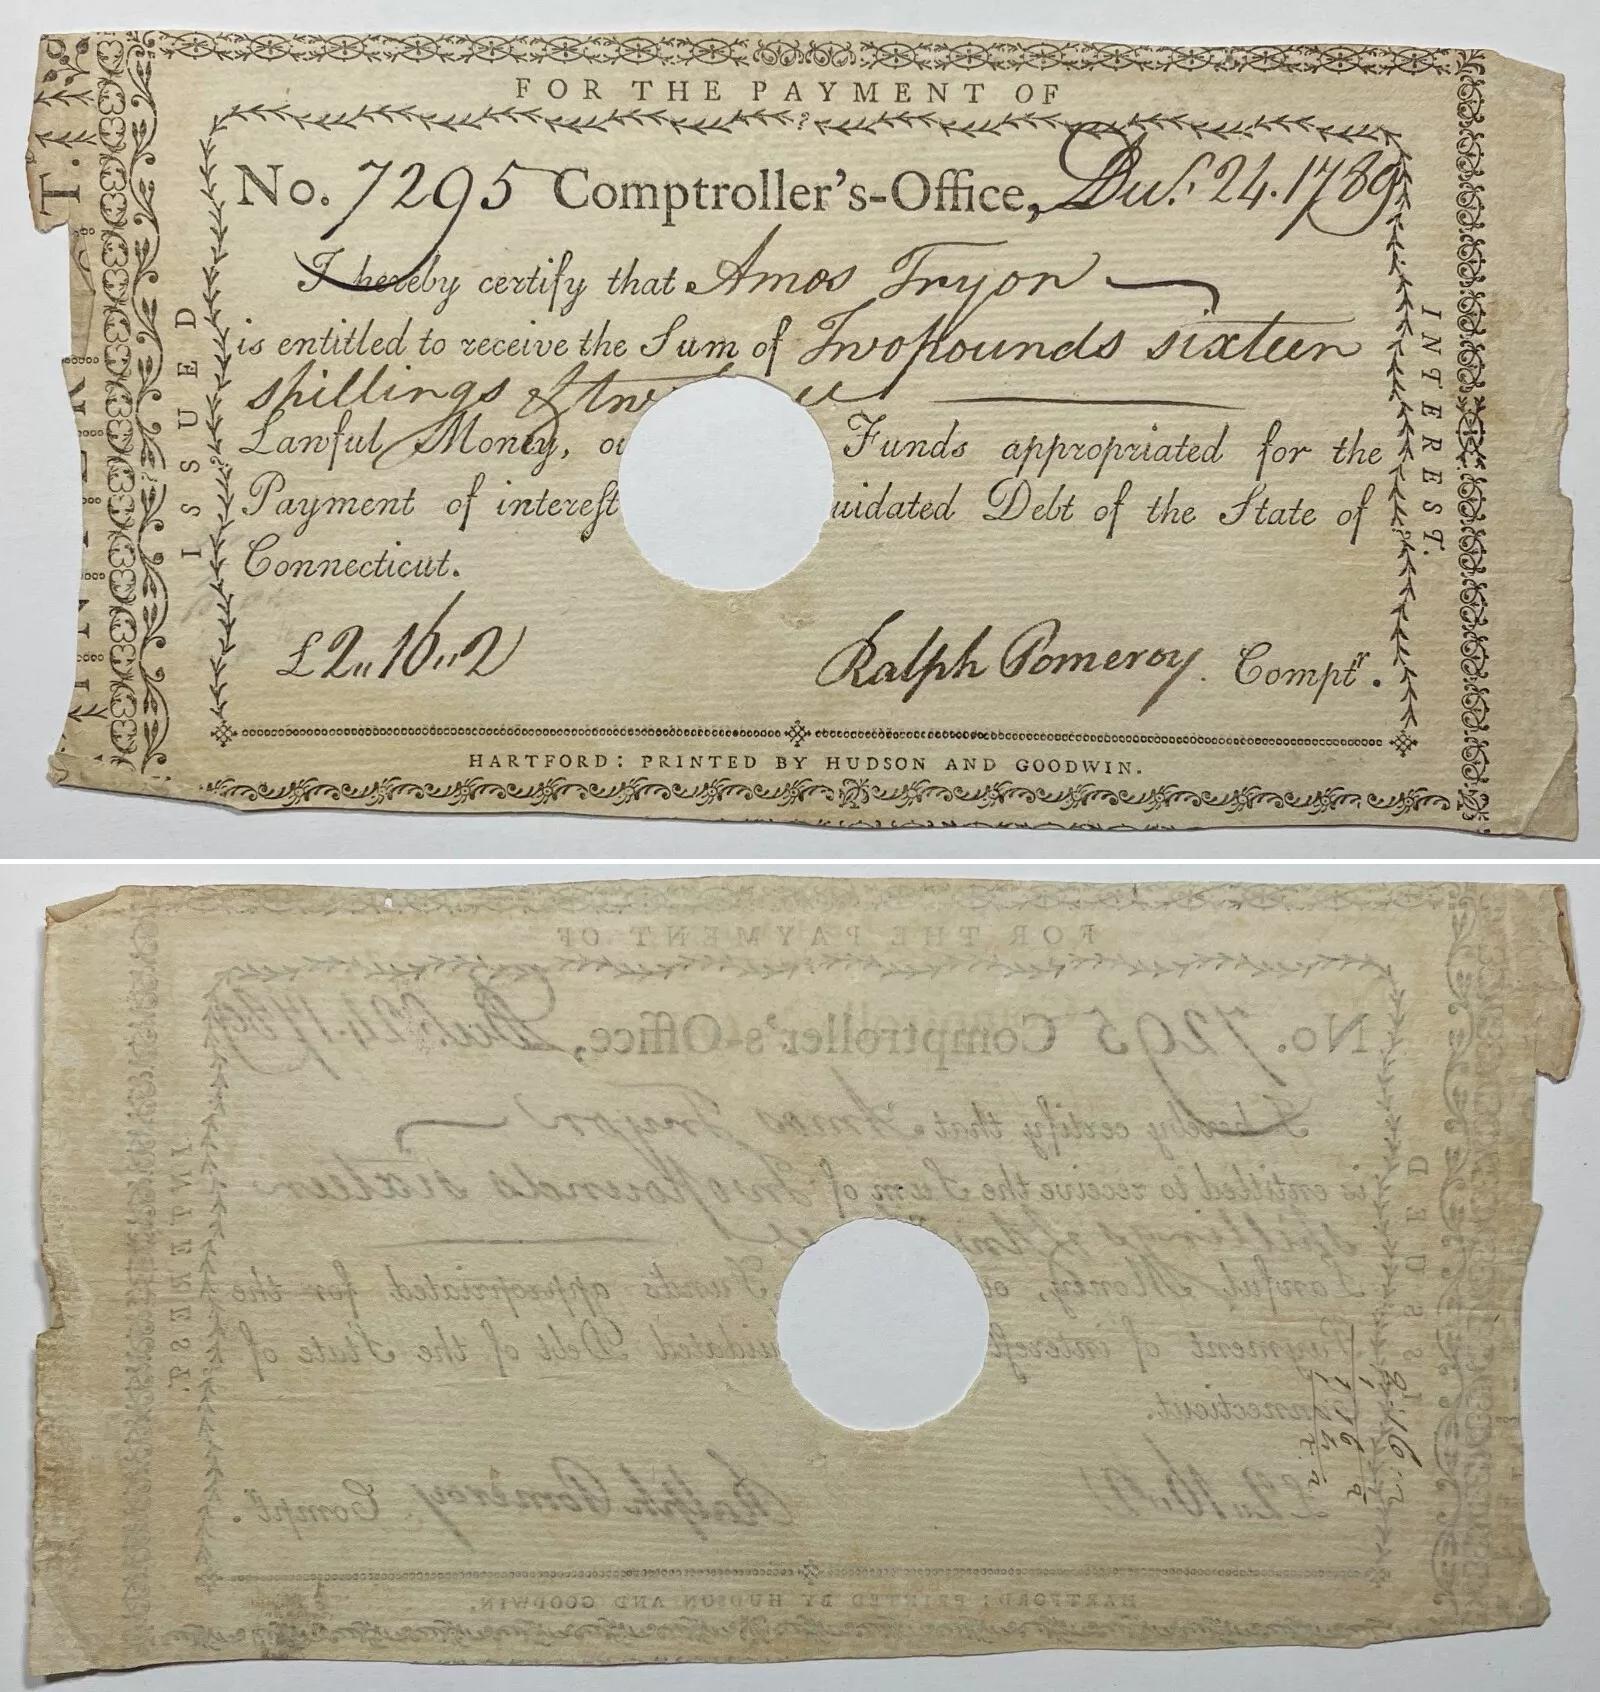 FOR THE PAYMENT OF
No. 7295 Comptroller's-Office, Decr. 24. 1789
I hereby certify that Amos Tryon
is entitled to receive the Sum of Two pounds sixteen
shillings & two
Lawful Money, Funds appropriated for the
Payment of interest uidated Debt of the State of
Connecticut.
£2"16"2
Ralph Pomeroy. Comptr.
HARTFORD: PRINTED BY HUDSON AND GOODWIN.
ISSUED
INTEREST.
T.
2.16.2